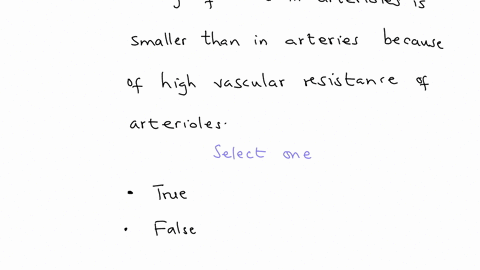 in arterioles is
smaller than in arteries because
of high vascular resistance of
arterioles.
Select one
• True
• False